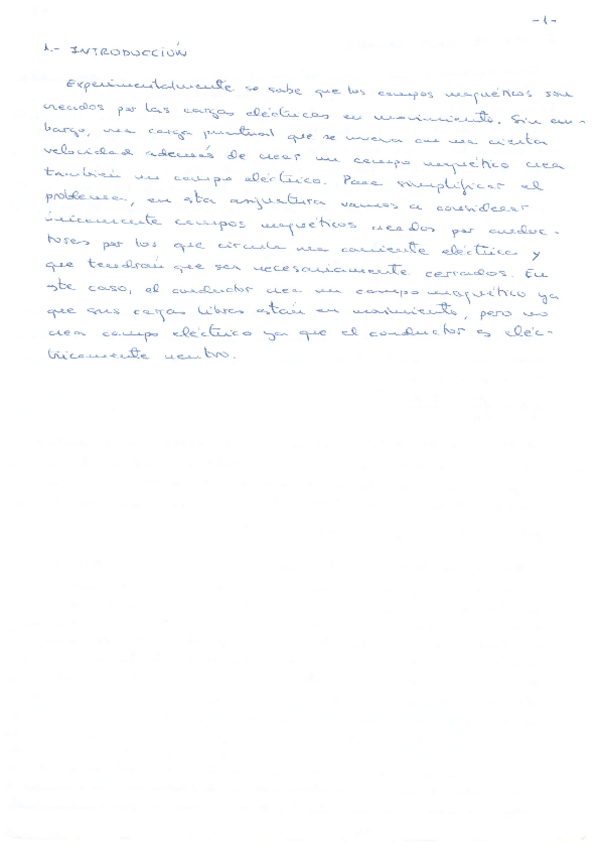 -1-
1.- INTRODUCCIÓN
Experimentalmente se sabe que los campos magnéticos son
creados por las cargas eléctricas en movimiento. Sin em-
bargo, una carga puntual que se mueva con una cierta
velocidad además de crear un campo magnético crea
también un campo eléctrico. Para simplificar el
problema, en esta asignatura vamos a considerar
únicamente campos magnéticos creados por conduc-
tores por los que circula una corriente eléctrica y
que tendrán que ser necesariamente cerrados. En
este caso, el conductor crea un campo magnético ya
que sus cargas libres están en movimiento, pero no
crea campo eléctrico ya que el conductor es eléc-
tricamente neutro.